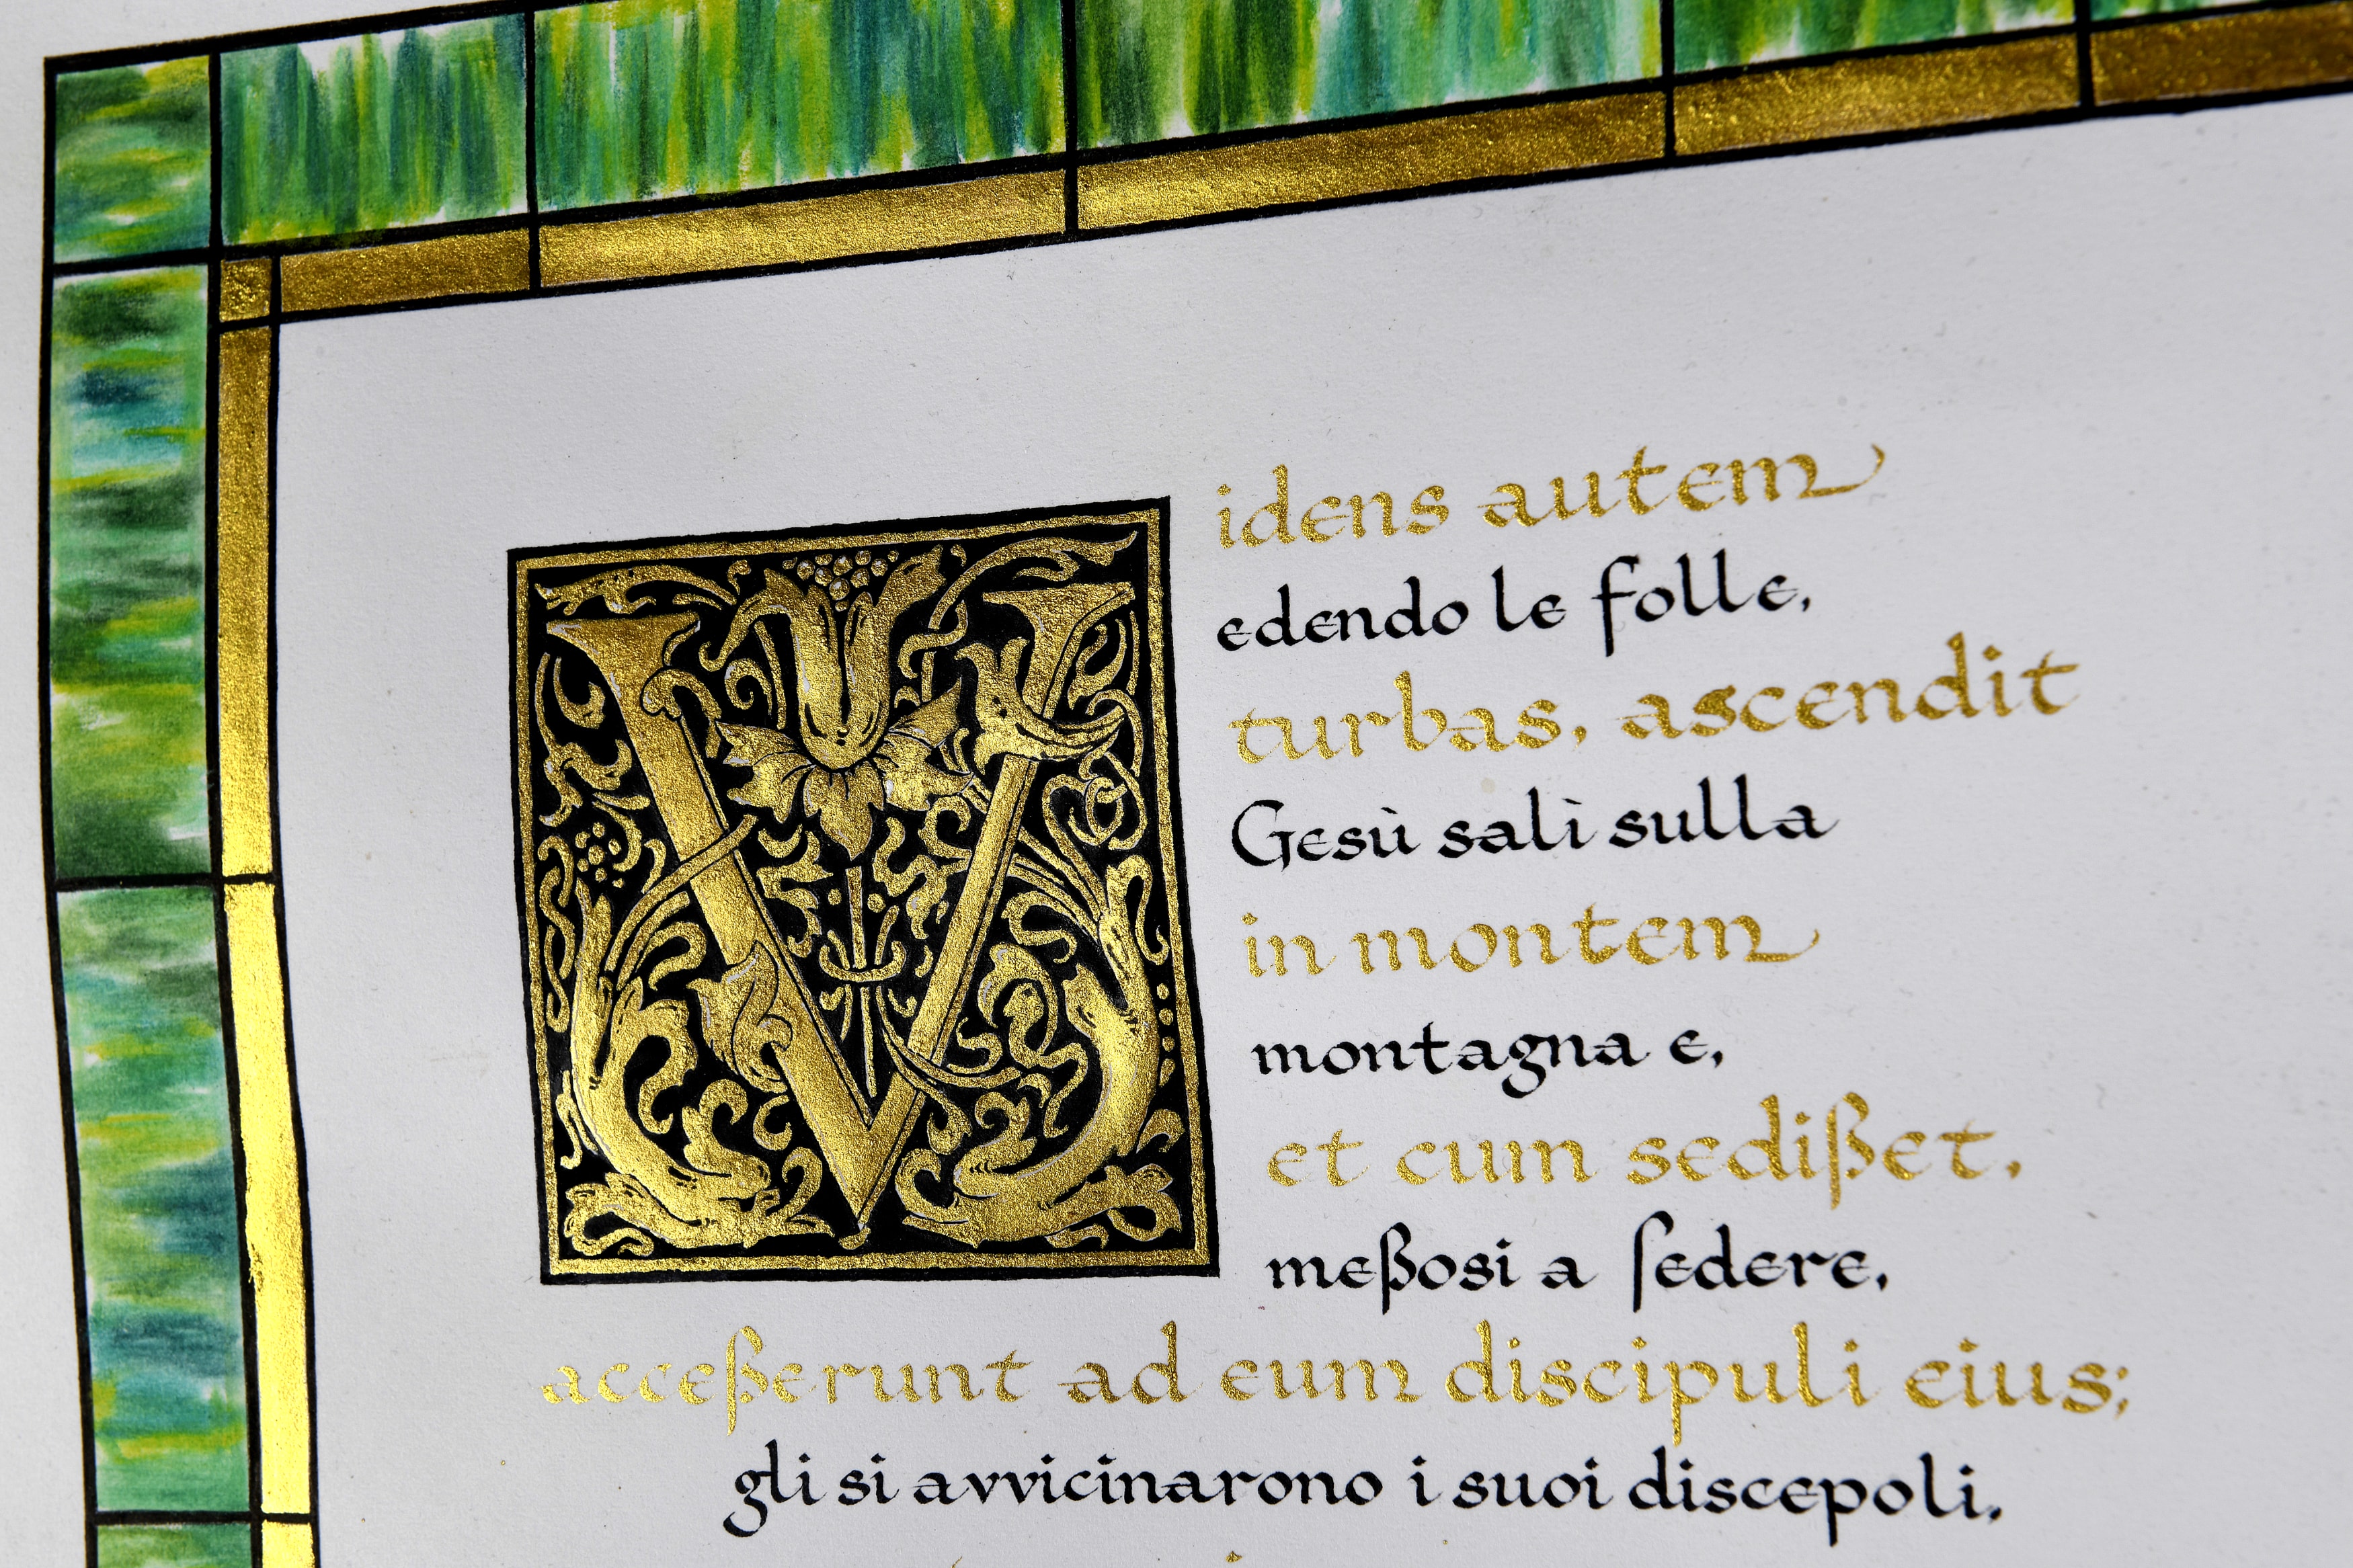 V
idens autem
edendo le folle,
turbas, ascendit
Gesù salì sulla
in montem
montagna e,
et cum sedißet,
meßosi a ſedere,
acceßerunt ad eum discipuli eius;
gli si avvicinarono i suoi discepoli.